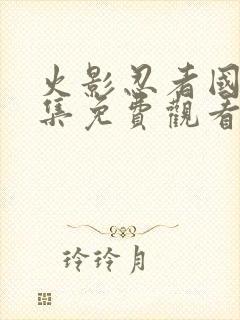 火影忍者國
集免費觀看
玲玲月